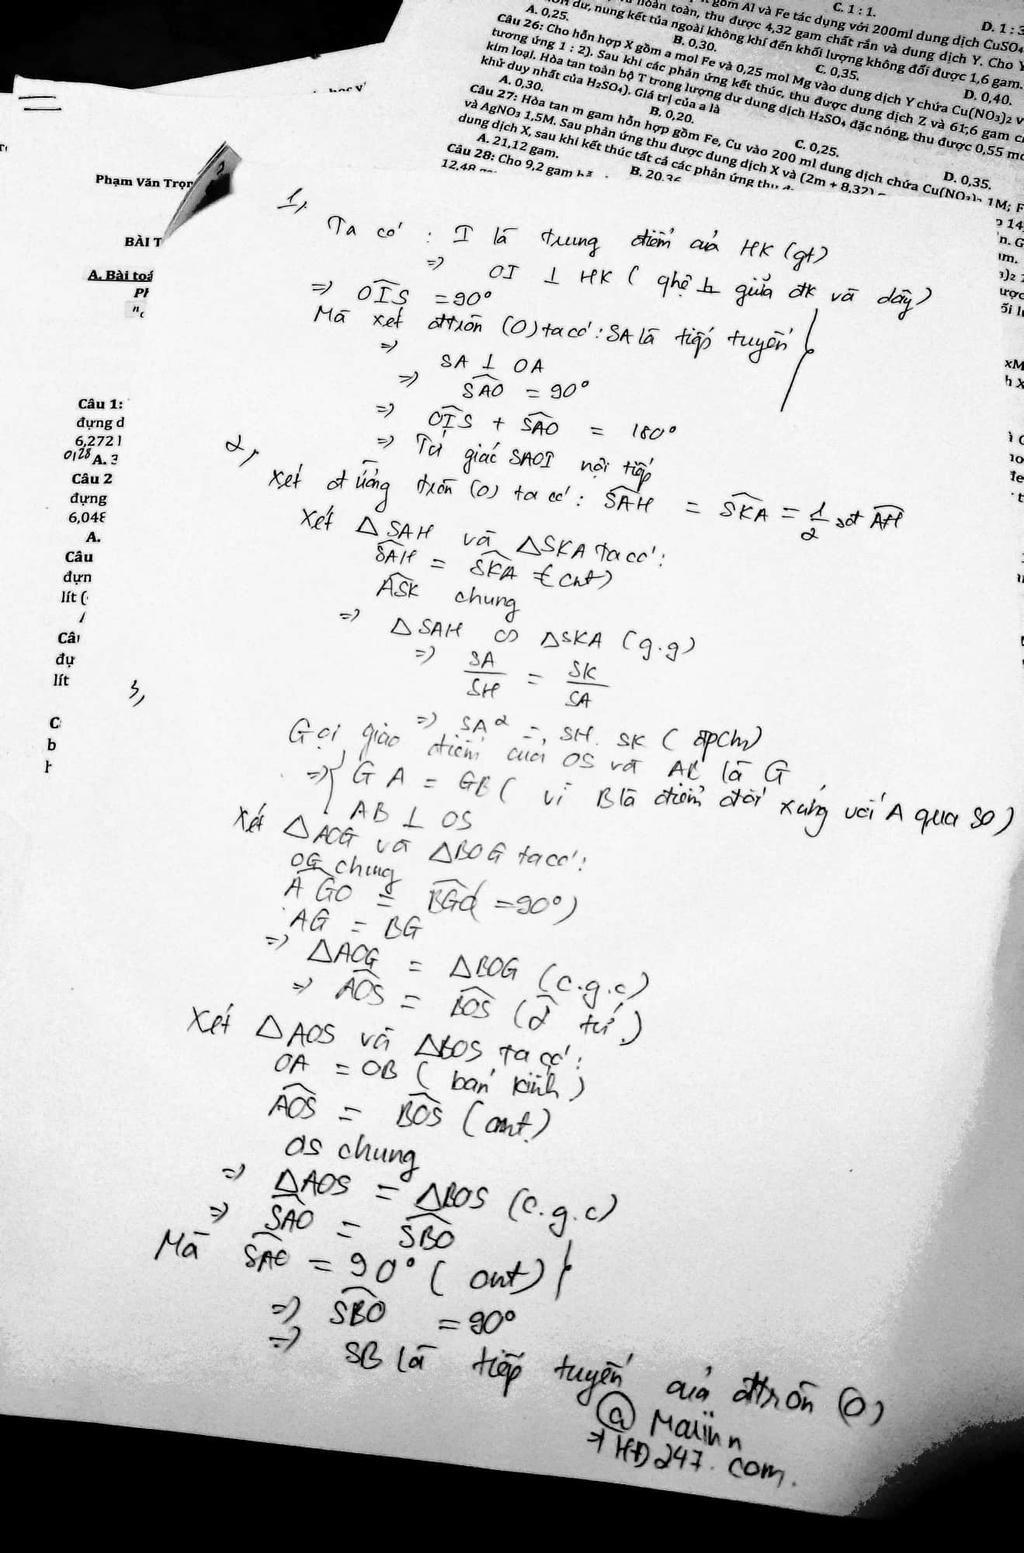 gồm Al và Fe tác dụng với 200ml dung dịch CuSO₄
C. 1 : 1.
D. 1 : 3
hoàn toàn, thu được 4,32 gam chất rắn và dung dịch Y. Cho Y
dư, nung kết tủa ngoài không khí đến khối lượng không đổi được 1,6 gam.
A. 0,25.
B. 0,30.
C. 0,35.
D. 0,40.
Câu 26: Cho hỗn hợp X gồm a mol Fe và 0,25 mol Mg vào dung dịch Y chứa Cu(NO₃)₂ v
tương ứng 1 : 2). Sau khi các phản ứng kết thúc, thu được dung dịch Z và 61,6 gam c
kim loại. Hòa tan toàn bộ T trong lượng dư dung dịch H₂SO₄ đặc nóng, thu được 0,55 mo
khử duy nhất của H₂SO₄). Giá trị của a là
A. 0,30.
B. 0,20.
C. 0,25.
D. 0,35.
Câu 27: Hòa tan m gam hỗn hợp gồm Fe, Cu vào 200 ml dung dịch chứa Cu(NO₃)₂ 1M; F
và AgNO₃ 1,5M. Sau phản ứng thu được dung dịch X và (2m + 8,32)
dung dịch X, sau khi kết thúc tất cả các phản ứng thu
A. 21,12 gam.
B. 20,36
Câu 28: Cho 9,2 gam
12,48
Phạm Văn Trọn
BÀI T
A. Bài toá
Câu 1:
đựng d
6,272 l
0,28 A. 3
Câu 2
đựng
6,048
A.
Câu
đựn
lít (
Câu
đự
lít
C
b
1,
Ta có : I là trung điểm của HK (gt)
=> OI ⊥ HK ( qhệ ⊥ giữa đk và dây)
=> OIS = 90°
Mà xét đtròn (O) ta có : SA là tiếp tuyến
=> SA ⊥ OA
=> SAO = 90°
=> OIS + SAO = 180°
=> Tứ giác SAOI nội tiếp
2,
Xét đường tròn (O) ta có : SAH = SKA = 1/2 sđ AH
Xét △SAH và △SKA ta có :
SAH = SKA (cmt)
ASK chung
=> △SAH ∽ △SKA (g.g)
=> SA/SH = SK/SA
=> SA² = SH. SK ( đpcm)
3,
Gọi giao điểm của OS và AB là G
=> { GA = GB ( vì B là điểm đối xứng với A qua SO)
AB ⊥ OS
Xét △AOG và △BOG ta có :
OG chung
AGO = BGO (=90°)
AG = BG
=> △AOG = △BOG (c.g.c)
=> AOS = BOS (2 tứ.)
Xét △AOS và △BOS ta có :
OA = OB ( bán kính )
AOS = BOS (cmt)
OS chung
=> △AOS = △BOS (c.g.c)
=> SAO = SBO
Mà SAO = 90° ( cmt)
=> SBO = 90°
=> SB là tiếp tuyến của đtròn (O)
@ Maiinn
→ HĐ247. com.